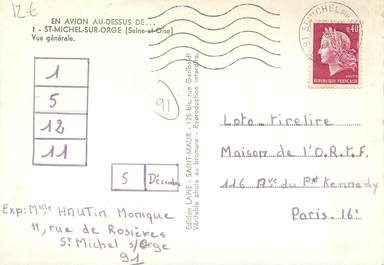 12€
EN AVION AU-DESSUS DE...
1 - ST-MICHEL-SUR-ORGE (Seine-et-Oise)
Vue générale.
91 ST MICHEL
0,40
REPUBLIQUE FRANÇAISE
1
5
12
11
91
5 Décembre
Edition LAPIE - SAINT-MAUR - 125 bis, rue Garibaldi
Véritable photo au bromure - Reproduction interdite.
Loto-tirelire
Maison de l'O.R.T.F.
116 Ave du Pdt Kennedy
Paris. 16e
Exp: Mlle HAUTIN Monique
11, rue de Rosières
St Michel s/Orge
91